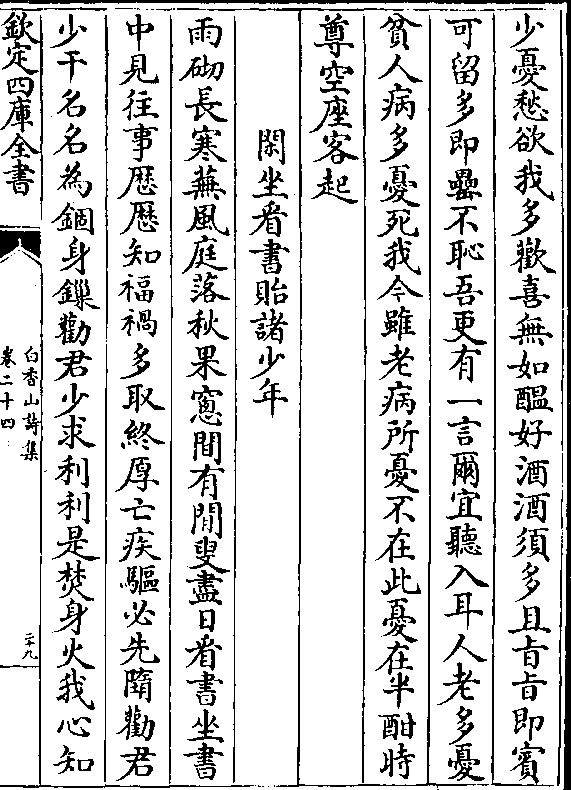 少憂愁欲我多歡喜無如醖好酒酒須多且㫖㫖即賓
可留多即罍不恥吾更有一言爾宜聽入耳人老多憂
貧人病多憂死我今雖老病所憂不在此憂在半酣時
尊空座客起
閑坐看書貽諸少年
雨砌長寒蕪風庭落秋果窻間有閒叟盡日看書坐書
中見往事歴歴知福禍多取終厚亡疾驅必先墮勸君
少干名名為錮身鏁勸君少求利利是焚身火我心知
欽定四庫全書
白香山詩集
卷二十四
二十九